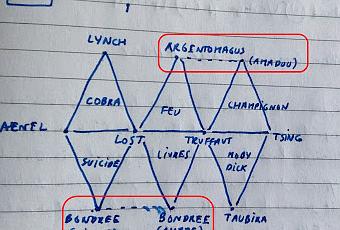 LYNCH
ARGENTOMAGUS
(AMADOU)
COBRA
FEU
CHAMPIGNON
LOST
TRUFFAUT
TSING
SUICIDE
LIVRES
MOBY
DICK
BONDREE
BONDREE
TAUBIRA